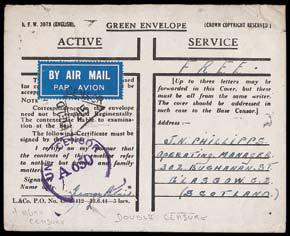 A.F.W. 3078 (ENGLISH)
GREEN ENVELOPE
(CROWN COPYRIGHT RESERVED.)
ACTIVE SERVICE
FREE.
BY AIR MAIL
PAR AVION
NOTE:—
Correspondence in this envelope
need not be censored Regimentally.
The contents are liable to examination
at the Base.
The following Certificate must be
signed by the
I certify on my honour that
the contents of this envelope refer
to nothing but private and family
matters.
Signature
Name only
UNIT CENSOR
A 650
[Up to three letters may be
forwarded in this Cover, but these
must be all from the same writer.
The cover should be addressed in
such case to the Base Censor.
Address:—
J.N. PHILLIPPE
OPERATING MANAGER
302 BUCHANAN ST.
GLASGOW C.2
(SCOTLAND)
L.&Co. P.O. 3ors.
DOUBLE CENSURE
CENSURE